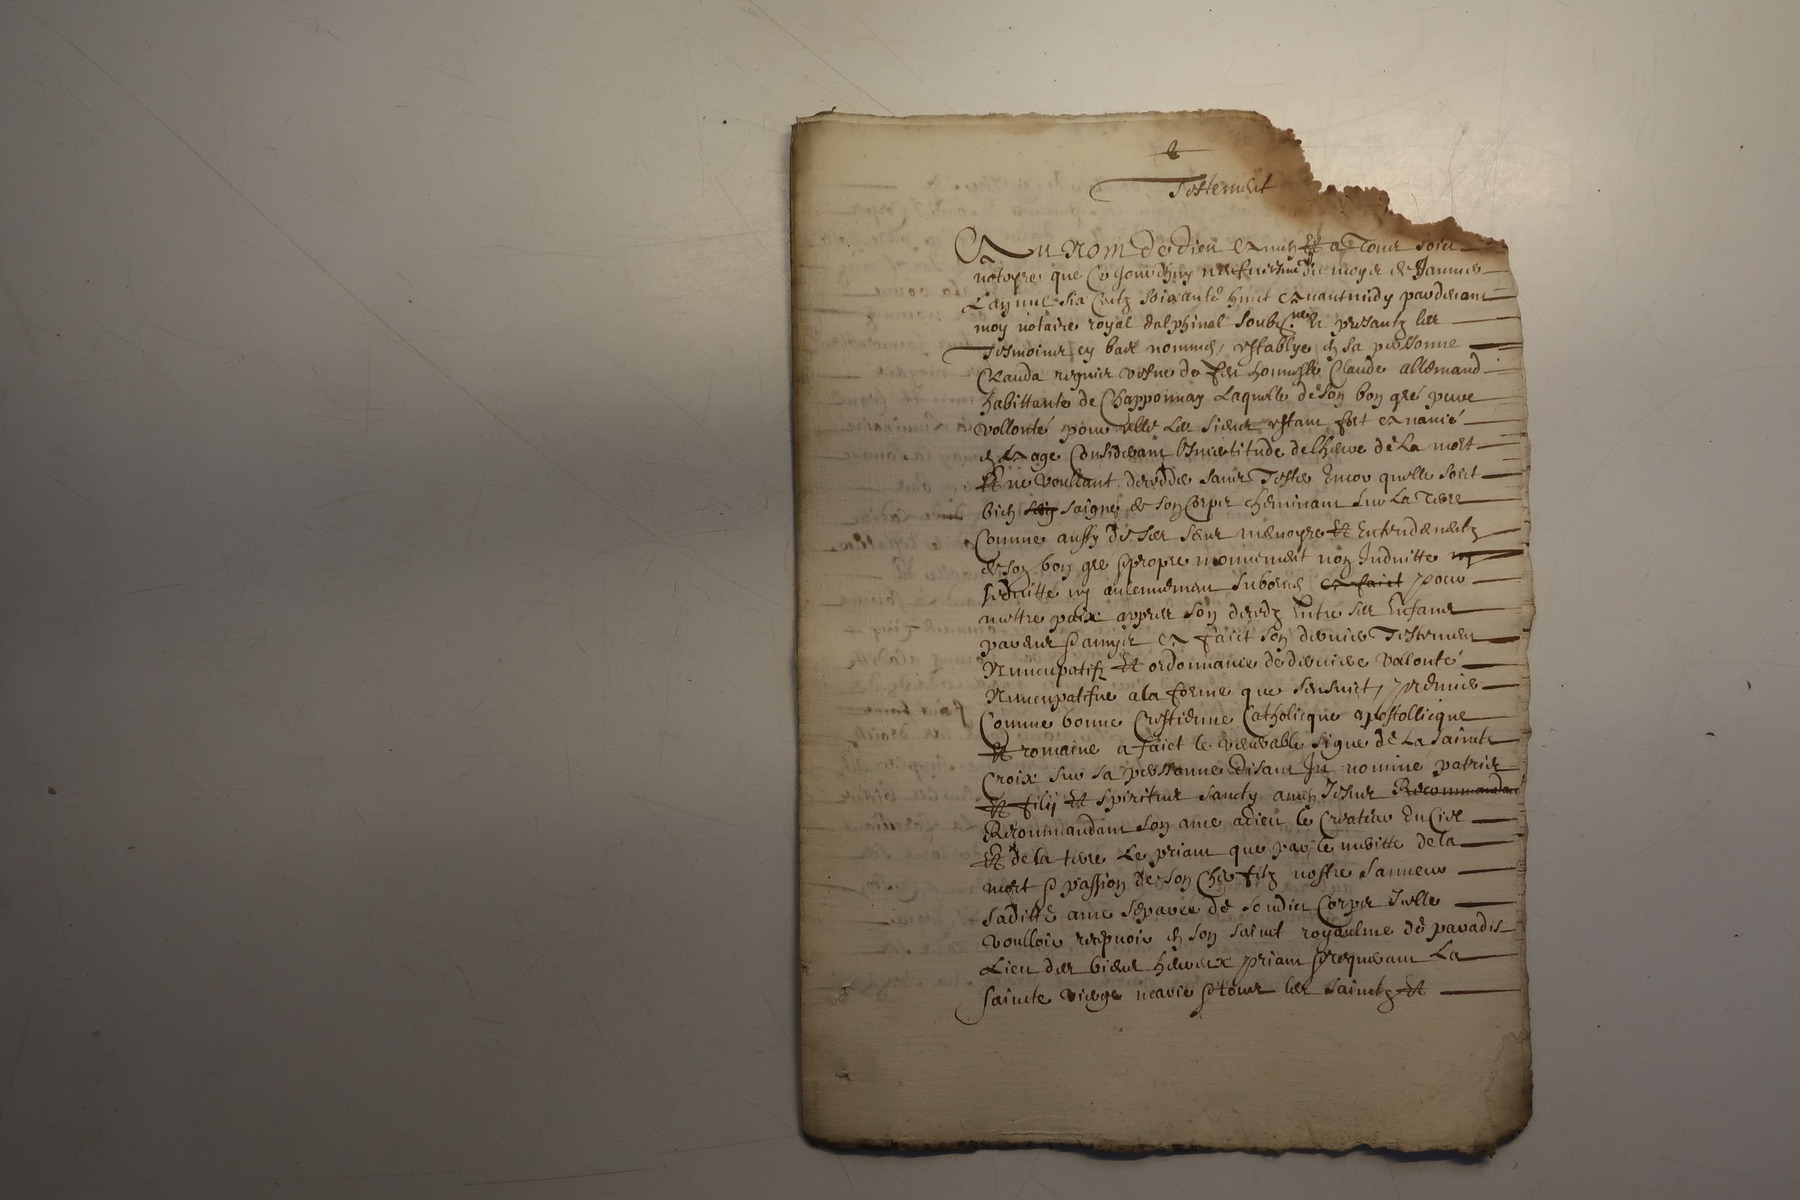 Testement
Au Nom de dieu Amen Et a Tous soict
notoyre que Ce Jourdhuy neufviesme du moys de Janvier
Lan mil six Centz soixante huict avant midy pardevant
moy notaire royal dalphinal soubzne et presantz les
Tesmoins cy bas nommes, establye en sa personne
Clauda vesve de feu honneste Claude allemand
habittante de Chapponnay Laquelle de son bon gré pure
vollonté pour elle Les siens estant fort avancé
en age Considerant lIncertitude de lheure de La mort
Et ne voullant deceder sans Tester Encor quelle soict
bien saigne de son Corps cheminant sur La Terre
Comme aussy de ses sens memoyre Et Entendementz
de son bon gré propre mouvement non Induitte ny
seduitte ny aulcunement subornee a faict pour
mettre paix appres son deced Entre ses Enfans
parens & amys a faict son dernier Testement
Nuncupatif Et ordonnance de derniere volonté
Nuncupative a la forme que sensuict, premier
Comme bonne Crestienne Catholicque apostollicque
Et romaine a faict le venerable signe de La saincte
Croix sur sa personne disant In nomine patris
Et filij Et spiritus sancty amen Jesus Recommandant
Recommandant son ame a dieu le Createur du Ciel
Et de la terre Le priant que par le meritte de la
mort & passion de son Cher filz nostre sauveur
saditte ame separee de sondict Corps Icelle
voulloir recepvoir en son sainct royaulme de paradis
Lieu des biens heureux priant & requerant La
saincte vierge marie & tous les sainctz Et